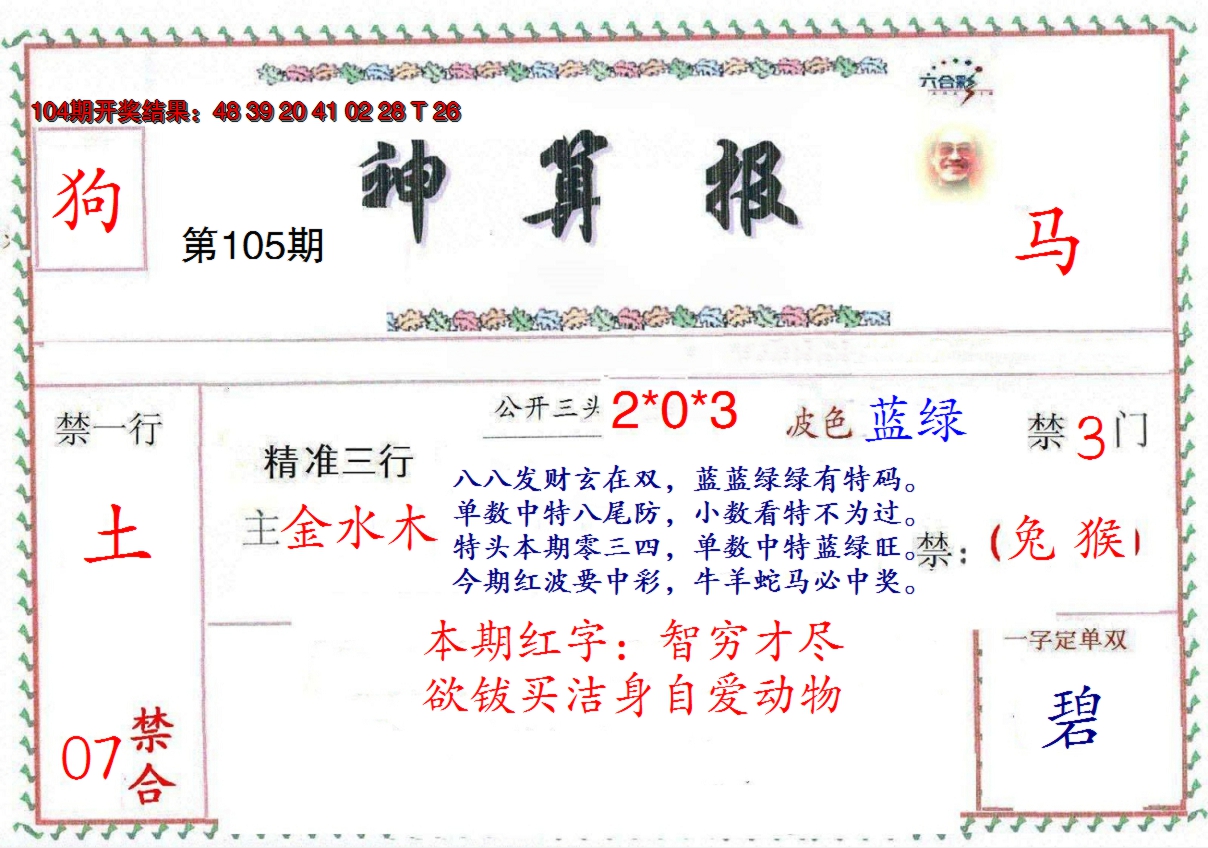 六合彩
104期开奖结果：48 39 20 41 02 28 T 26
狗
第105期
神算报
马
禁一行
土
07
禁合
精准三行
主金水木
公开三头 2*0*3
波色 蓝绿
禁3门
禁：（兔 猴）
八八发财玄在双，蓝蓝绿绿有特码。
单数中特八尾防，小数看特不为过。
特头本期零三四，单数中特蓝绿旺。
今期红波要中彩，牛羊蛇马必中奖。
本期红字：智穷才尽
欲钹买洁身自爱动物
一字定单双
碧